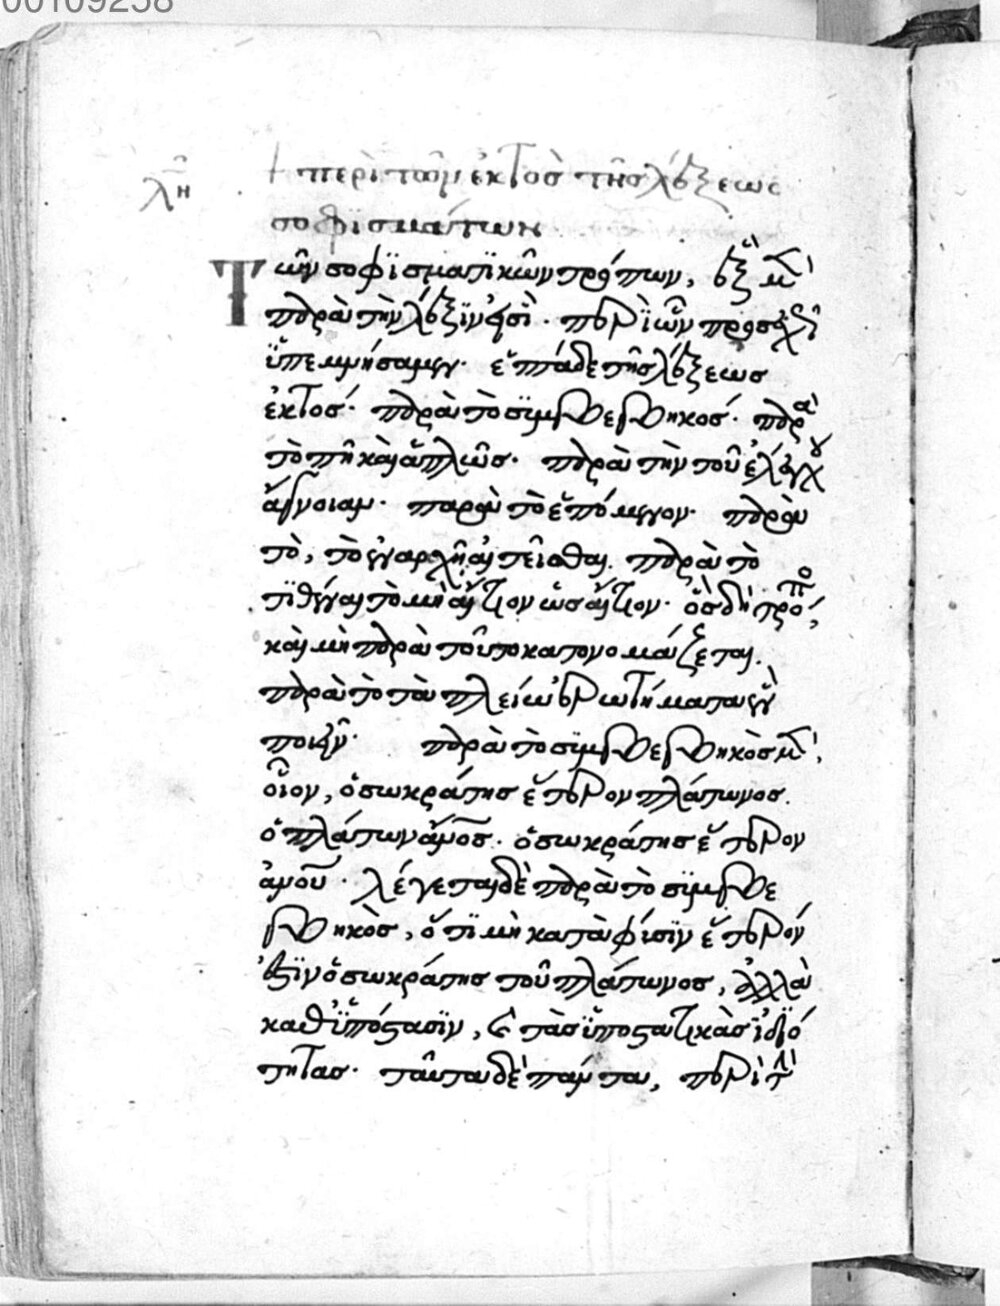 00109258
λη
+ περὶ τῶν ἐκτὸς τῆς λέξεως
σοφϊσμάτων
Τῶν σοφϊσματϊκῶν τρόπων, ἓξ μ(ὲν)
παρὰ τὴν λέξϊν φσὶ· περὶ ὧν προσεχ
ὑπεμνήσαμεν· ἑπτὰ δὲ τῆς λέξεως
ἐκτός· παρὰ τὸ συμβεβηκός· παρὰ
τὸ πῆ καὶ ἁπλῶς· παρὰ τὴν τοῦ ἐλέγχου
ἄγνοιαν· παρὰ τὸ ἑπόμενον· παρὰ
τὸ, τὸ ἐν ἀρχῆ αἰτεῖσθαι. παρὰ τὸ
τϊθέναι τὸ μὴ αἴτιον ὡς αἴτιον· ὃς δὴ τρόπο,
καὶ μὴ παρὰ τοῦτο κατονομάζεται.
παρὰ τὸ τὰ πλείω ἐρωτήματα ἓν
ποιεῖν· παρὰ τὸ συμβεβηκὸς μ(ὲν),
οἷον, ὁ σωκράτης ἕτερον πλάτωνος.
ὁ πλάτων ἄνος· ὁ σωκράτης ἕτερον
ἀνου· λέγεται δὲ παρὰ τὸ συμβε
βηκὸς, ὅτϊ μὴ κατὰ φύσϊν ἕτερόν
ἐστϊν ὁ σωκράτης τοῦ πλάτωνος, ἀλλὰ
καθ' ὑπόστασϊν, καὶ τὰς ὑποστατικὰς ἰδιό
τητας· ταῦτα δὲ πάντα, περὶ τ